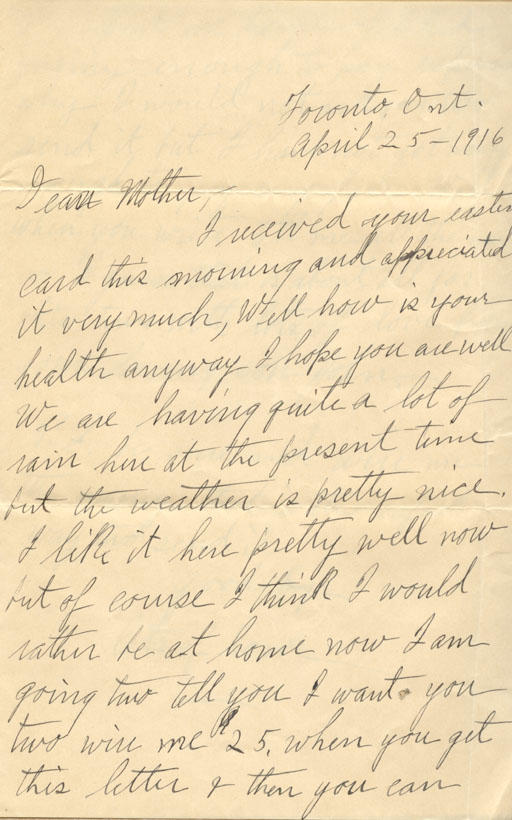 Toronto, Ont.
April 25-1916
Dear Mother,-
I received your easter
card this morning and appreciated
it very much, Well how is your
health anyway I hope you are well
We are having quite a lot of
rain here at the present time
but the weather is pretty nice.
I like it here pretty well now
but of course I think I would
rather be at home now I am
going two tell you I want you
two wire me $25. when you get
this letter & then you can